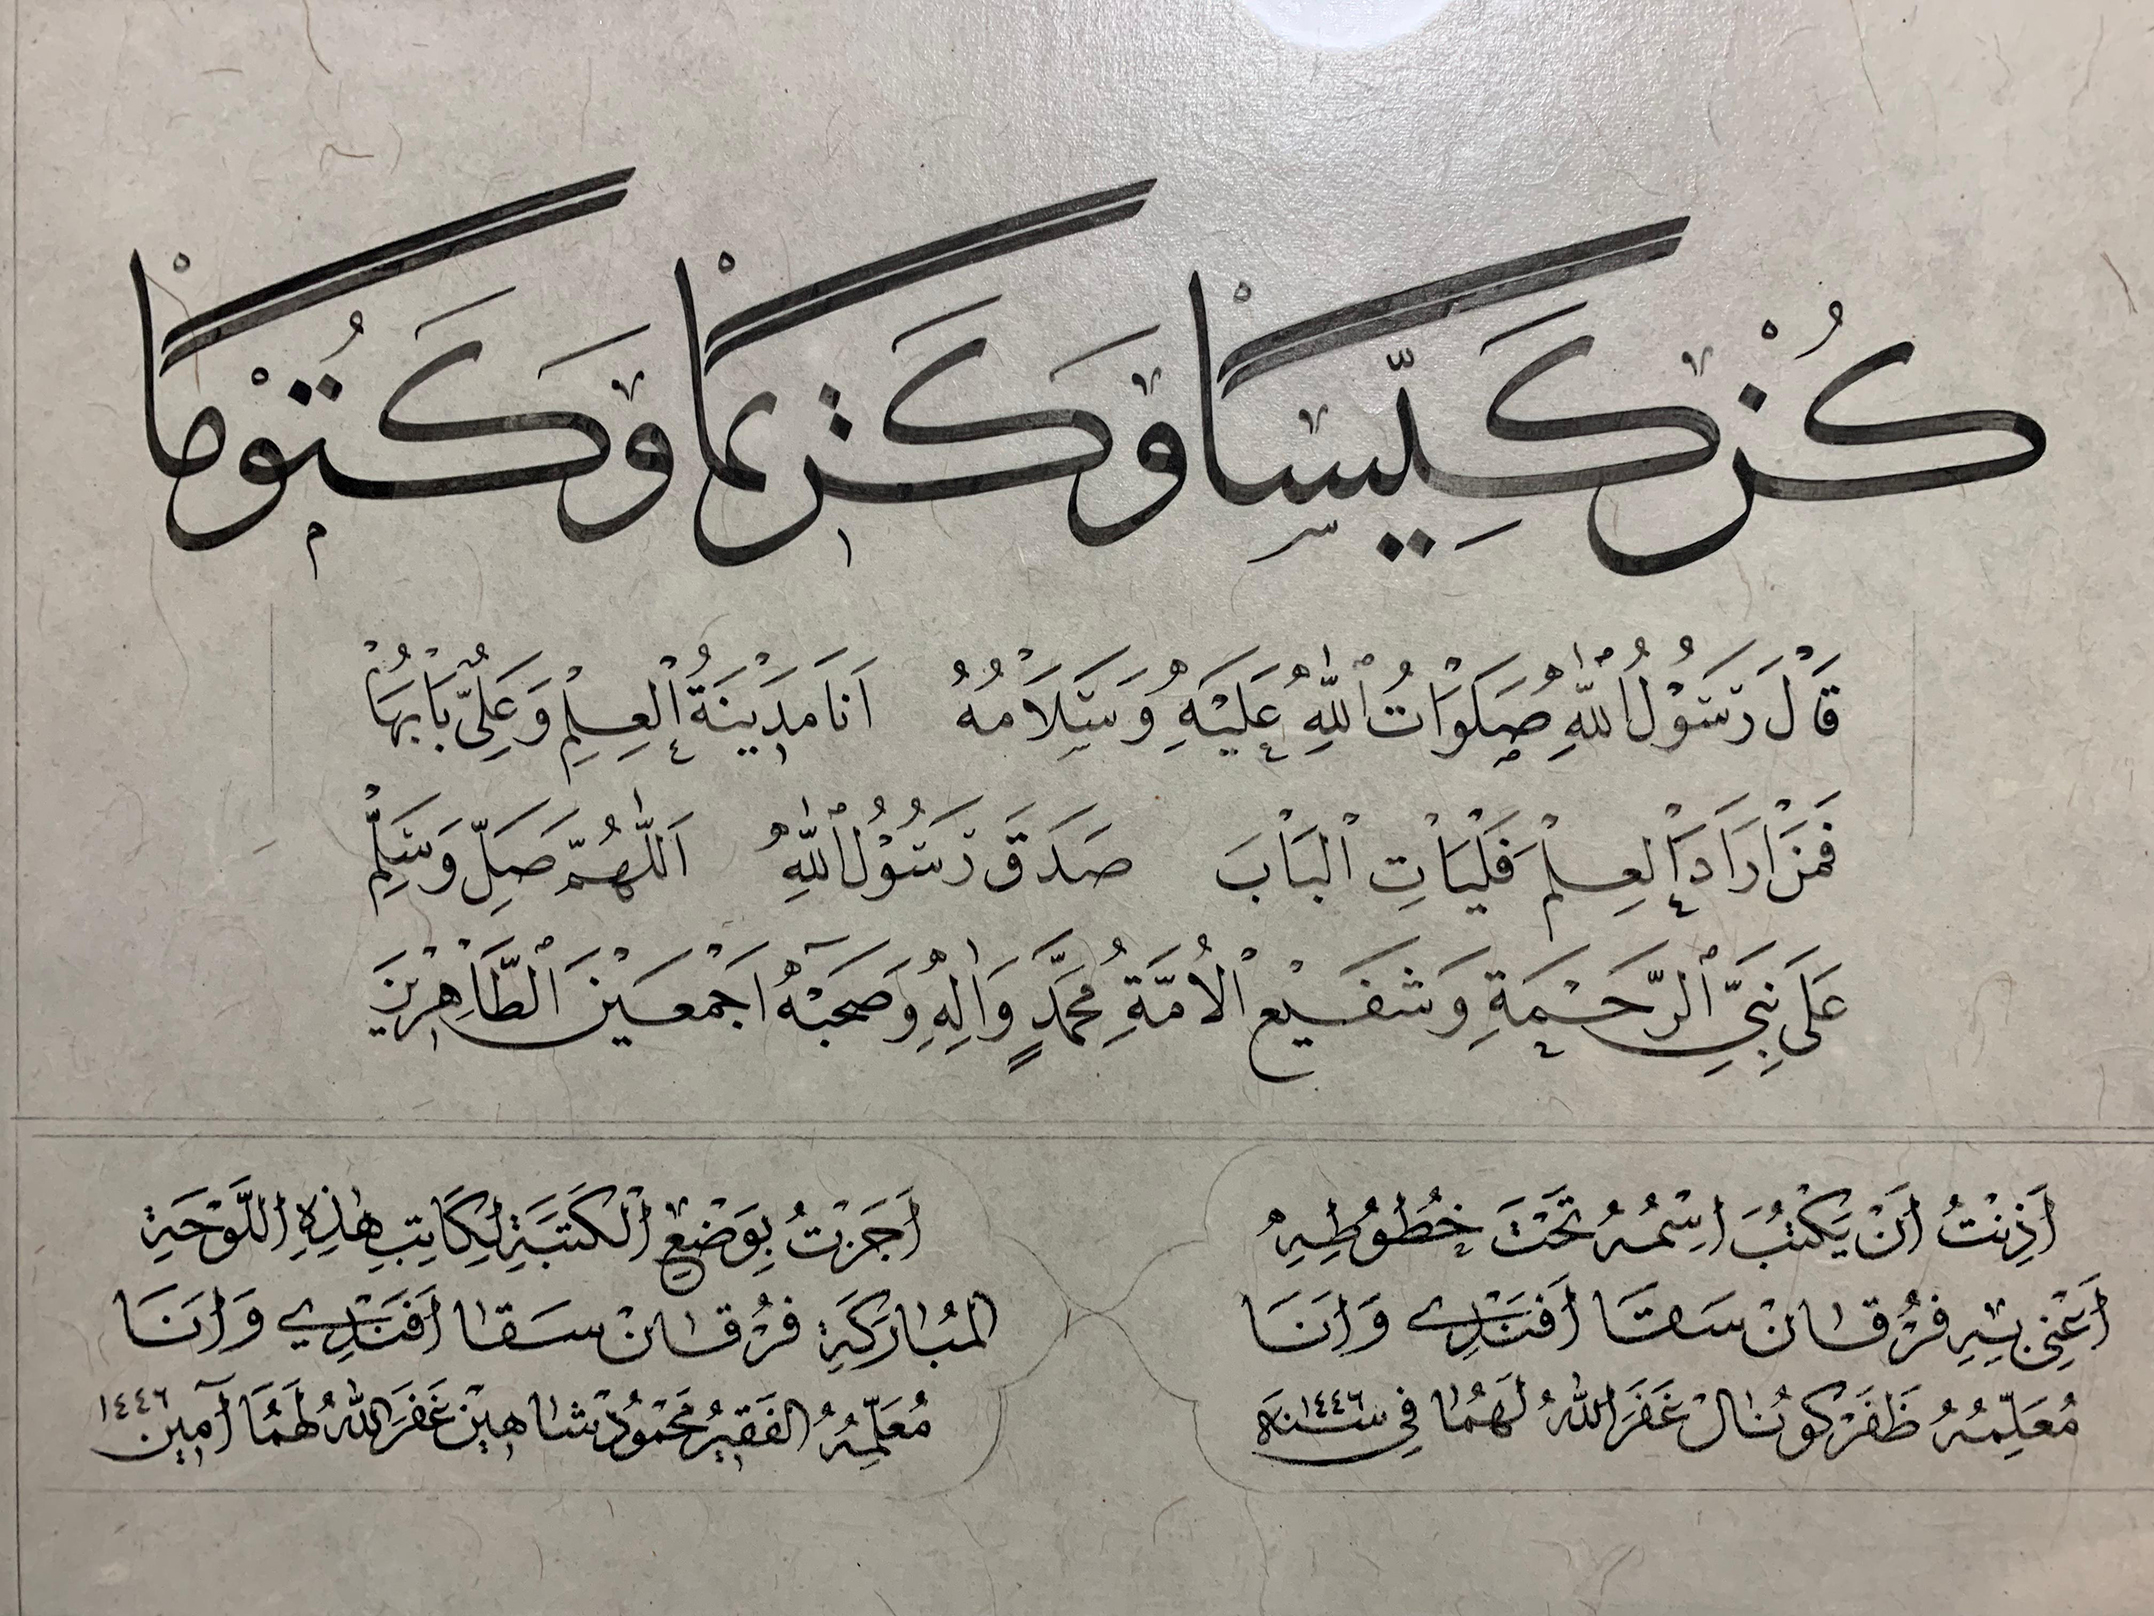 كُنْ كَيِّسًا وَكَرِيمًا وَكَتُومًا
قَالَ رَسُولُ اللّٰهِ صَلَوَاتُ اللّٰهِ عَلَيْهِ وَسَلَامُهُ اَنَا مَدِينَةُ الْعِلْمِ وَعَلِيٌّ بَابُهَا
فَمَنْ اَرَادَ الْعِلْمَ فَلْيَاْتِ الْبَابَ صَدَقَ رَسُولُ اللّٰهِ اَللّٰهُمَّ صَلِّ وَسَلِّمْ
عَلَى نَبِيِّ الرَّحْمَةِ وَشَفِيعِ الْاُمَّةِ مُحَمَّدٍ وَاٰلِهِ وَصَحْبِهِ اَجْمَعِينَ الطَّاهِرِينَ
اَذِنْتُ اَنْ يَكْتُبَ اسْمُهُ تَحْتَ خُطُوطِهِ
اَعْنِي بِهِ فُرْقَانْ سَقَا اَفَنْدِي وَاَنَا
مُعَلِّمُهُ ظَفَرْ كُونَالْ غَفَرَ اللّٰهُ لَهُمَا فِي سَنَة ١٤٤٦
اَجَزْتُ بِوَضْعِ الْكَتَبَةِ لِكَاتِبِ هٰذِهِ اللَّوْحَةِ
الْمُبَارَكَةِ فُرْقَانْ سَقَا اَفَنْدِي وَاَنَا
مُعَلِّمُهُ الْفَقِيرُ مَحْمُودْ شَاهِينْ غَفَرَ اللّٰهُ لَهُمَا آمِين ١٤٤٦